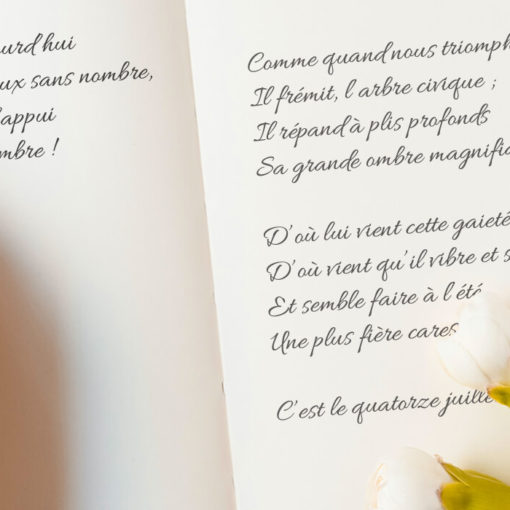 sans nombre,
Comme quand nous
Il frémit, l'arbre civique ;
Il répand à plis profonds
Sa grande ombre
D'où lui vient cette gaieté
D'où vient qu'il vibre et
Et semble faire à l'été
Une plus fière
C'est le quatorze